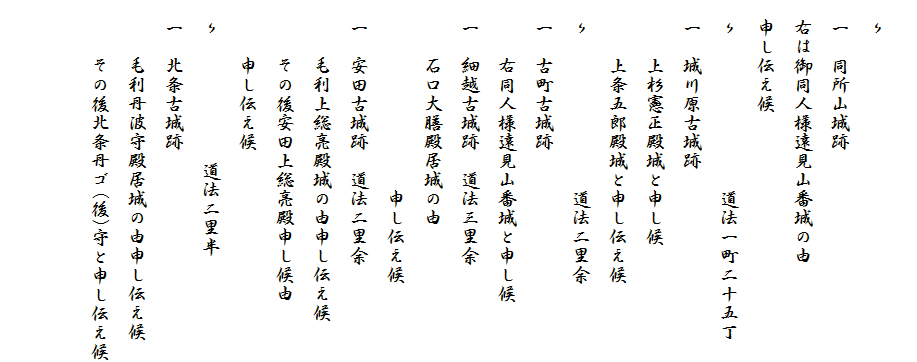 〃
一　同所山城跡
右は御同人様遠見山番城の由
申し伝え候
〃　　　　　道法一町二十五丁
一　城川原古城跡
上杉憲正殿城と申し候
上条五郎殿城と申し伝え候
〃　　　　　道法二里余
一　古町古城跡
右同人様遠見山番城と申し候
一　細越古城跡　道法三里余
石口大膳殿居城の由
申し伝え候
一　安田古城跡　道法二里余
毛利上総亮殿城の由申し伝え候
その後安田上総亮殿申し候由
申し伝え候
〃　　　　道法二里半
一　北条古城跡
毛利丹波守殿居城の由申し伝え候
その後北条丹ゴ（後）守と申し伝え候